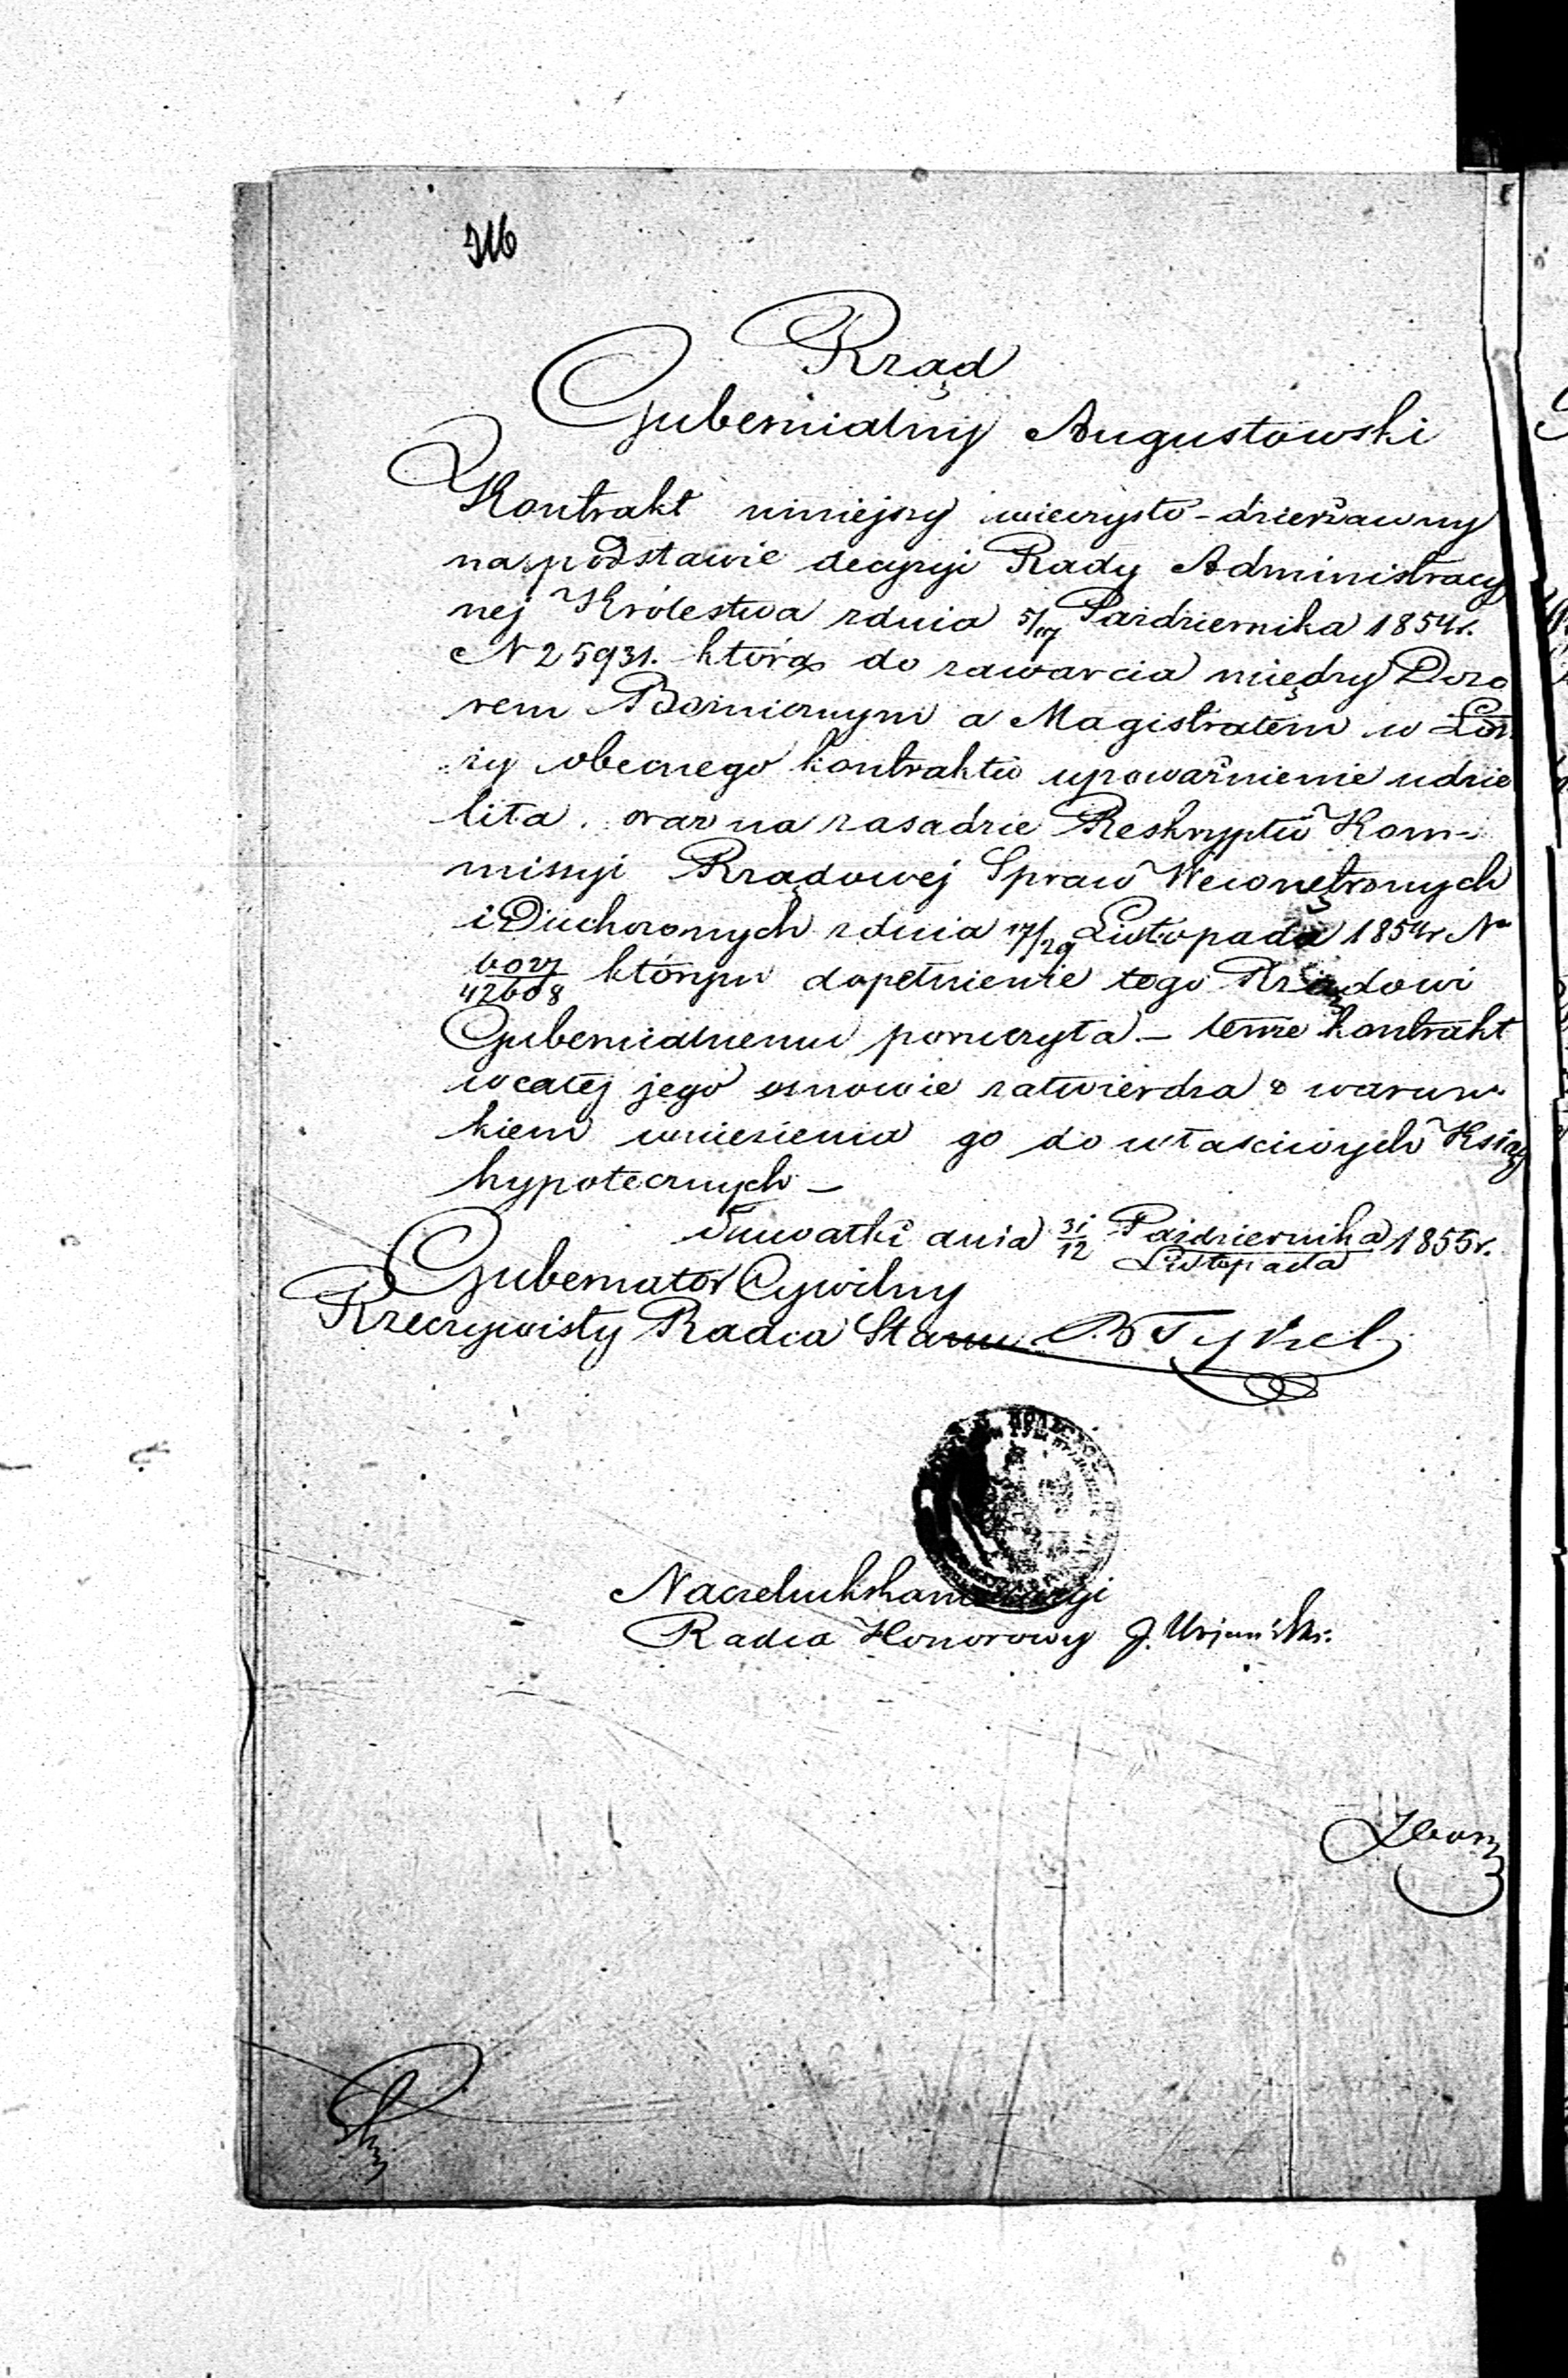 Rząd
Gubernialny Augustowski
Kontrakt niniejszy wieczysto-dzierżawny
na podstawie decyzyi Rady Administracy
nej Królestwa z dnia 5/17 Pazdziernika 1854 r.
N 25931. którą do zawarcia między Dozo
rem Bożnicznym a Magistratem w Łom
ży obecnego kontraktu upoważnienie udzie
liła. oraz na zasadzie Reskryptu Kom-
missyi Rządowej Spraw Wewnętrznych
i Duchownych z dnia 17/29 Listopada 1854 r No
42608 którym dopełnienie tego Rządowi
Gubernialnemu poruczyła. — tenże kontrakt
w całej jego osnowie zatwierdza z warun
kiem wniesienia go do właściwych Ksiąg
hypotecznych —
Suwałki dnia 31/12 Pazdziernika/Listopada 1855 r.
Gubernator Cywilny
Rzeczywisty Radca Stanu
Naczelnik Kancellaryi
Radca Honorowy J.